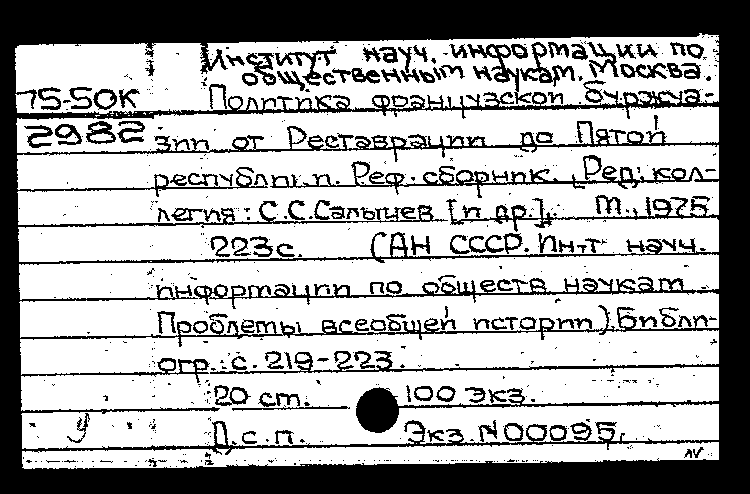 Институт науч. информации по
общественным наукам. Москва.
75-50К Политика французской буржуа-
2982 зии от Реставрации до Пятой
республики. Реф. сборник. [Ред. кол-
легия: С.С.Салычев [и др.]. М., 1975
223с. (АН СССР. Ин-т науч.
информации по обществ наукам
Проблемы всеобщей истории). Библи-
огр.: с. 219-223.
20 см. 100 экз.
Д.с.п. Экз. N00095.